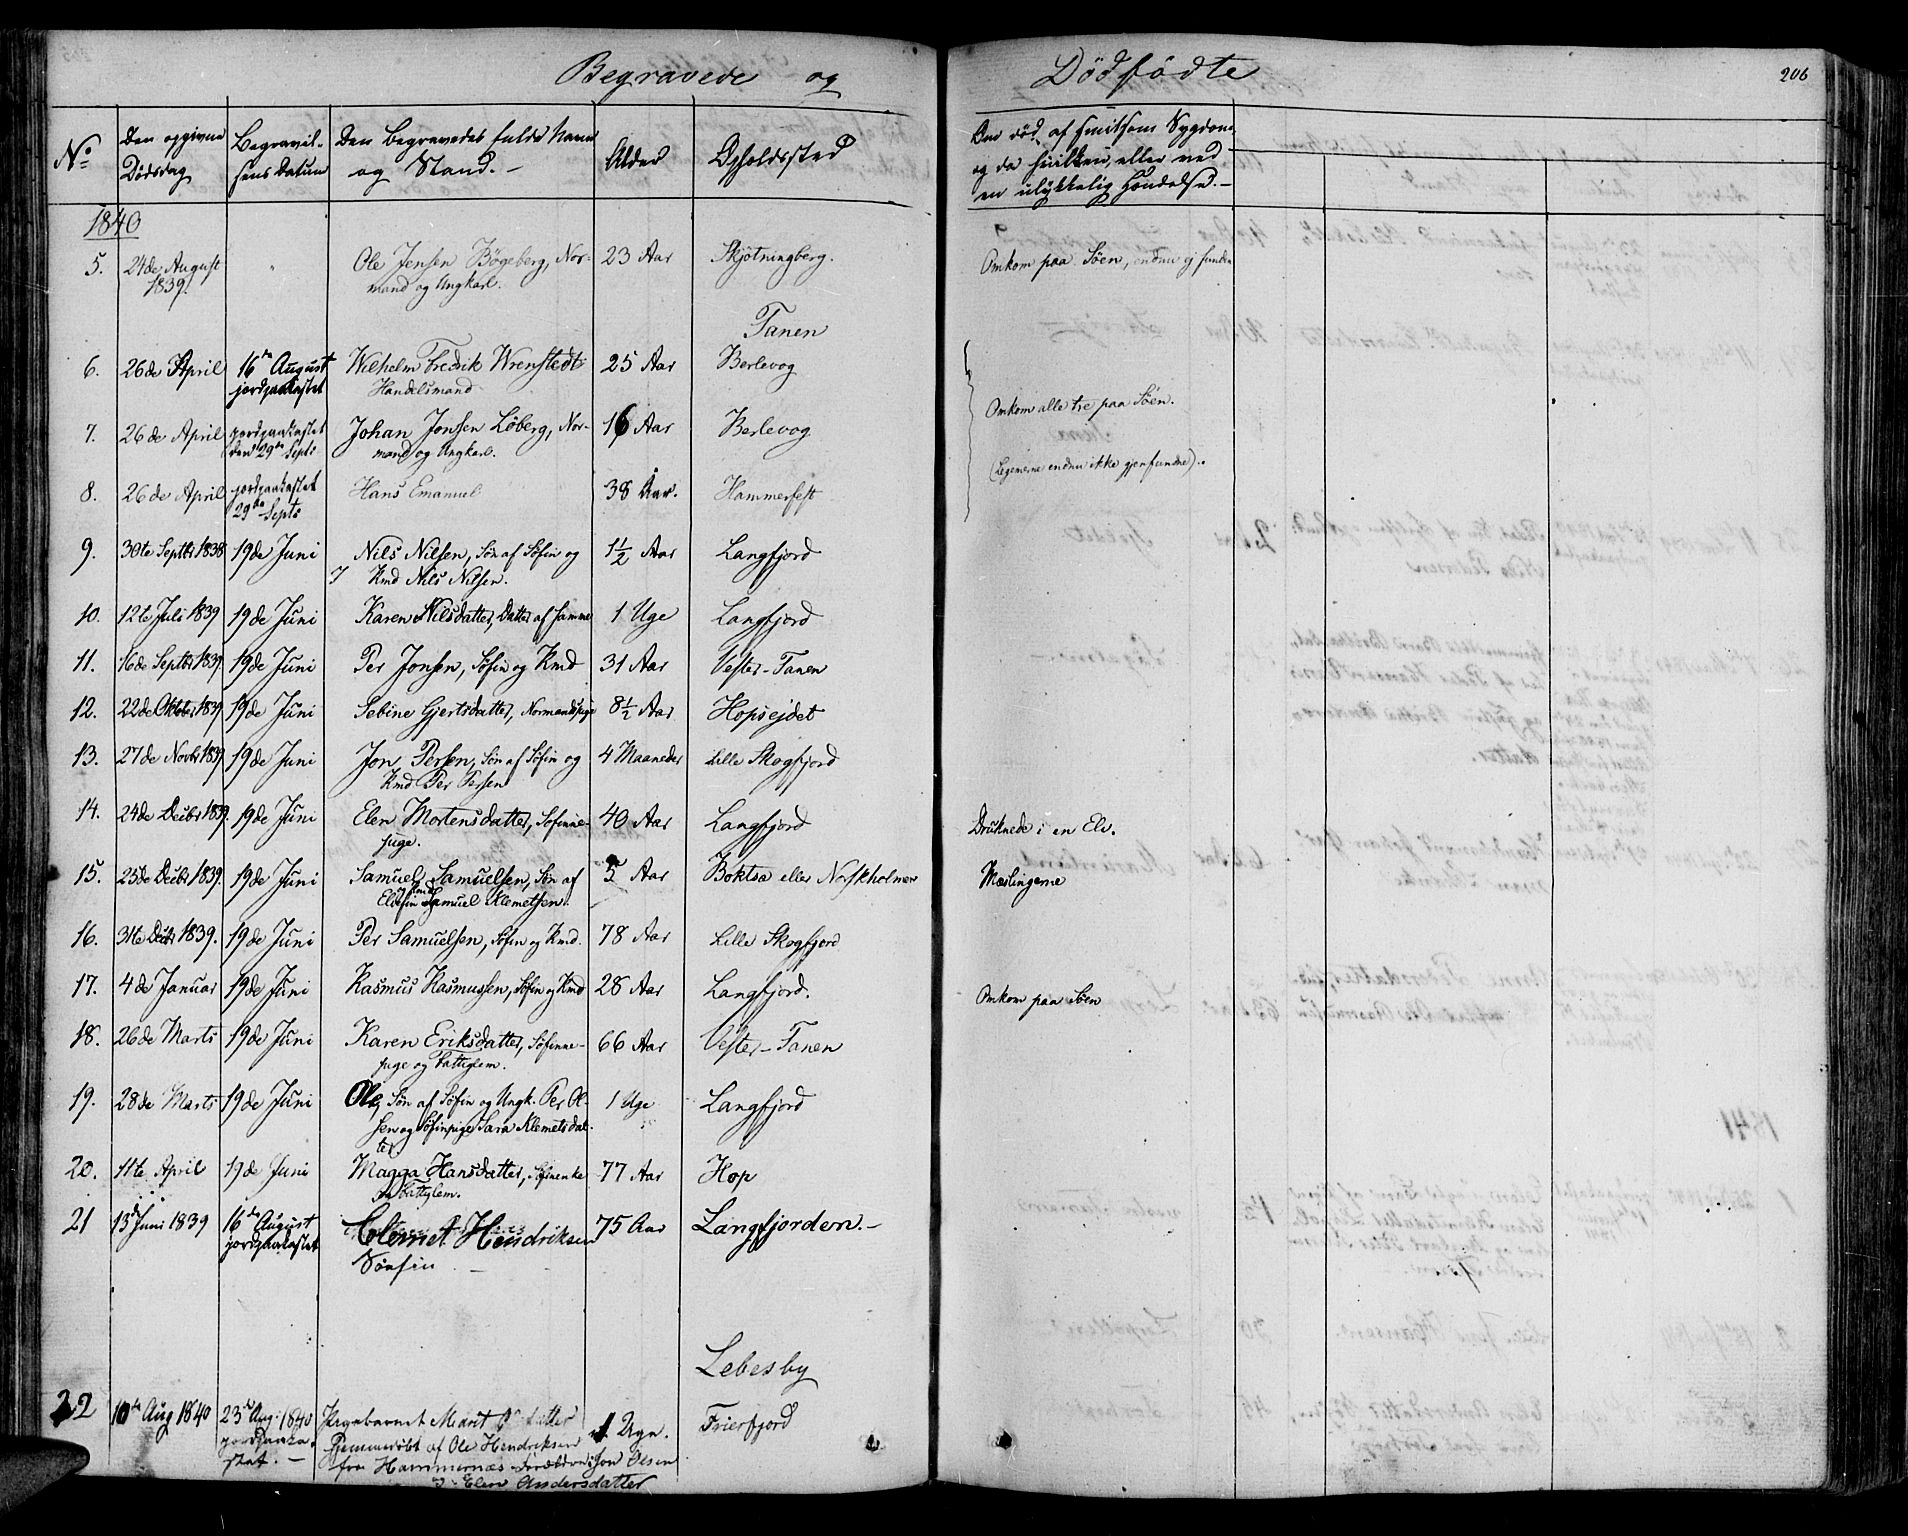 Begravede og Dödfödte
206
No
Den opgivne Dödsdag
Begravelsens Datum
Den Begravedes fulde Navn og Stand.
Alder
Opholdssted
Om död af smitsom Sygdom, og da hvilken, eller ved en ulykkelig Hændelse.
1840
5. 24de August 1839. " Ole Jensen Bögeberg, Normand og Ungkarl. 23 Aar Skjötningberg. Omkom paa Söen, endnu ej funden
Tanen
6. 26de April 16de August jordpaakastet Wilhelm Fredrik Wrenstedt Handelsmand 25 Aar Berlevog
7. 26de April jordpaakastet den 29de Septr Johan Jonsen Löberg, Normand og Ungkarl. 16 Aar Berlevog Omkom alle tre paa Söen.
8. 26de April jordpaakastet 29de Septr Hans Emanuel 38 Aar. Hammerfest (Legemerne endnu ikke gjenfundne).
9. 30te Septbr 1838 19de Juni Nils Nilsen, Sön af Söfin og Kmd Nils Nilsen. 1½ Aar Langfjord
10. 12te Juli 1839 19de Juni Karen Nilsdatter, Datter af samme 1 Uge Langfjord
11. 16de Septbr 1839. 19de Juni Per Jonsen, Söfin og Kmd 31 Aar Vester-Tanen
12. 22de Oktober 1839 19de Juni Sebine Gjertsdatter, Normandspige 8½ Aar Hopsejdet
13. 27de Novbr 1839 19de Juni Jon Persen, Sön af Söfin og Kmd Per Persen 4 Maaneder Lille Skogfjord
14. 24de Decbr 1839. 19de Juni Elen Mortensdatter, Söfinnepige. 40 Aar Langfjord Druknede i en Elv.
15. 25de Decbr 1839. 19de Juni Samuel Samuelsen, Sön af Elvefin og Kmd Samuel Klemetsen. 5 Aar Boktsa eller Næskholmen Mæslingerne
16. 31te Decbr 1839. 19de Juni Per Samuelsen, Söfin og Kmd. 78 Aar Lille Skogfjord
17. 4de Januar 19de Juni Rasmus Rasmussen, Söfin og Kmd 28 Aar Langfjord. Omkom paa Söen
18. 26de Marts 19de Juni Karen Eriksdatter, Söfinnepige og Fattiglem. 66 Aar Vester-Tanen
19. 28de Marts 19de Juni Ole, Sön af Söfin og Ungk. Per Olsen og Söfinpige Sara Klemetsdatter 1 Uge Langfjord
20. 11te April 19de Juni Magga Hansdatter, Söfinenke og Fattiglem. 77 Aar Hop
21 13de Juni 1839 16de August jordpaakastet Clemet Hendriksen Söefin 75 Aar Langfjorden.
Lebesby
22 10de Aug 1840 23de Aug: 1840 jordpaakastet. Pigebarnet Marit datter Hjemmedöbt af Ole Hendriksen fra Hammernæs Forældre: Jon Olsen og Elen Andersdatter 1 Uge. Frierfjord
1841